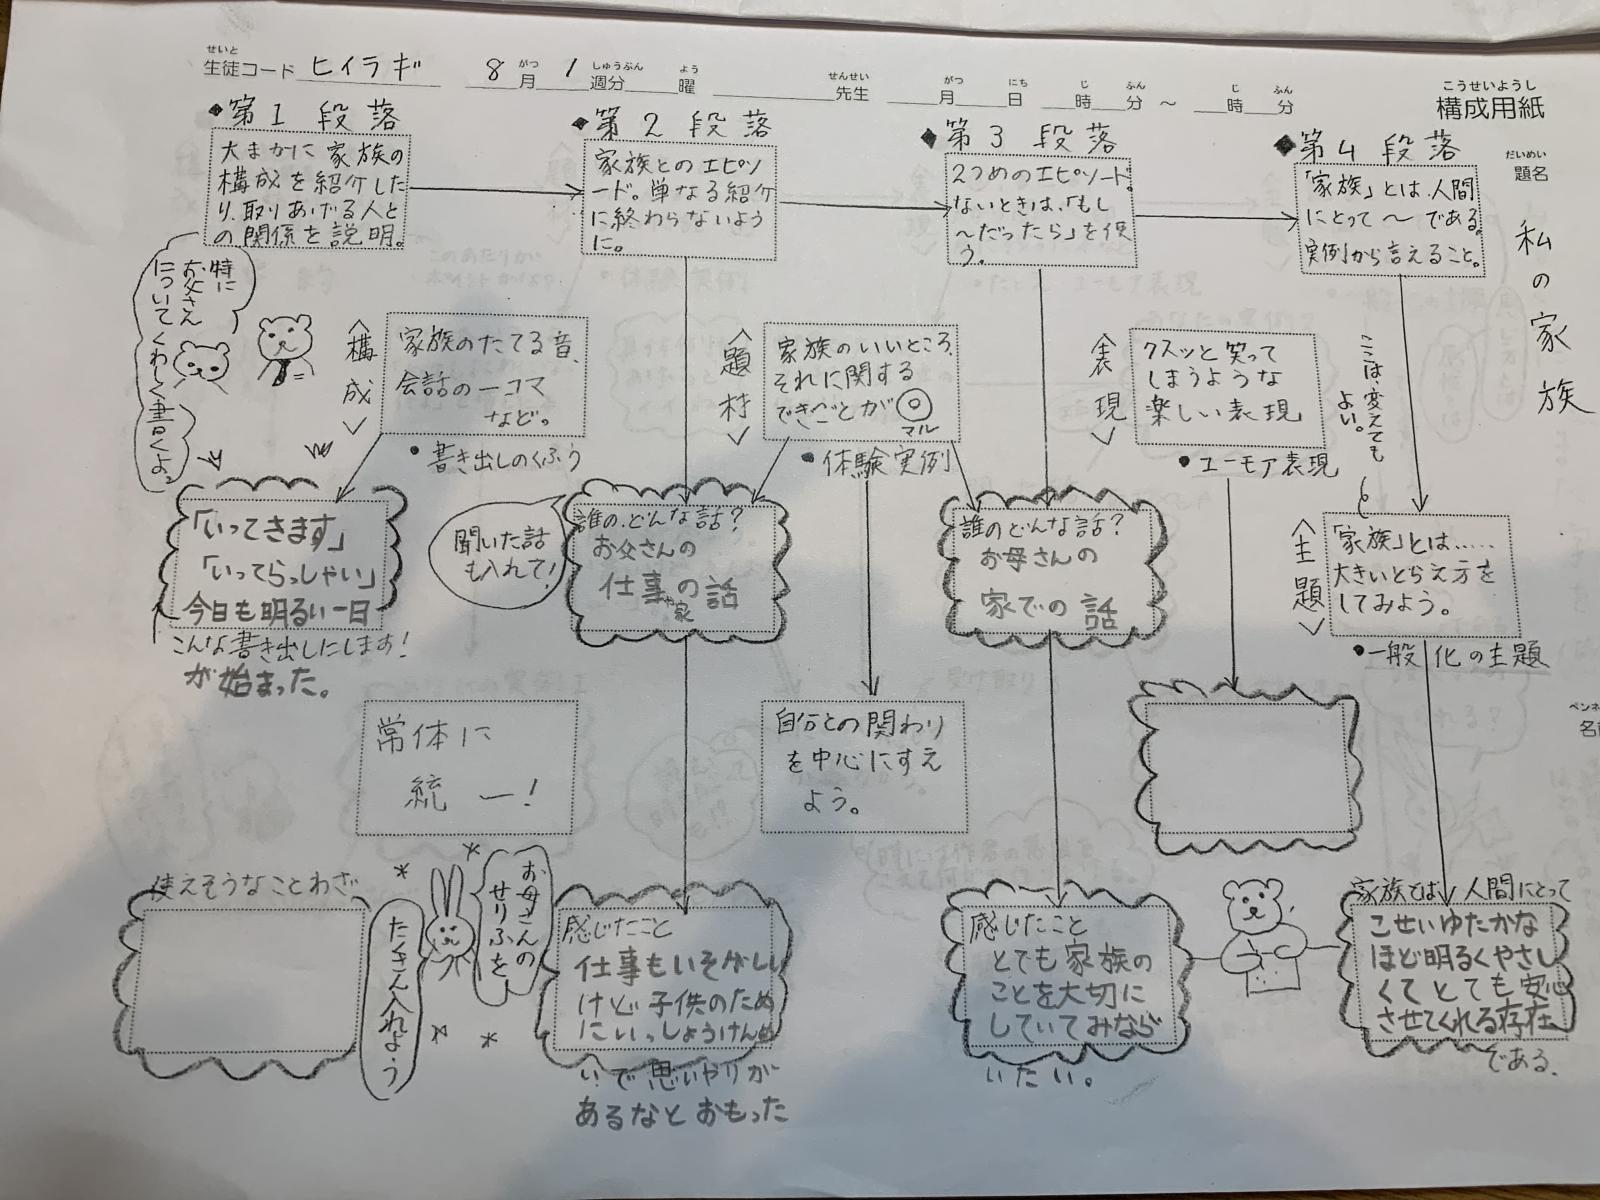 せいと
生徒コード ヒイラギ 8 月 1 週分 曜 先生 月 日 時 分 ～ 時 分
がつ しゅうぶん よう せんせい がつ にち じ ふん じ ふん
こうせいようし
構成用紙
だいめい
題名
私の家族
◆第1段落
大まかに家族の
構成を紹介した
り、取りあげる人と
の関係を説明。
◆第2段落
家族とのエピソ
ード。単なる紹介
に終わらないよう
に。
◆第3段落
2つめのエピソード。
ないときは、「もし
～だったら」を使
う。
◆第4段落
「家族」とは、人間
にとって～である。
実例から言えること。
特に
お父さん
について
くわしく書くよ。
〈構成〉
家族のたてる音、
会話の一コマ
など。
・書き出しのくふう
〈題材〉
家族のいいところ、
それに関する
できごとが◎
マル
・体験実例
〈表現〉
クスッと笑って
しまうような
楽しい表現
・ユーモア表現
ここは、変えても
よい。
「いってきます」
「いってらっしゃい」
今日も明るい一日
こんな書き出しにします!
が始まった。
聞いた話
も入れて!
誰の、どんな話?
お父さんの
仕事の話
や家
誰のどんな話?
お母さんの
家での話
〈主題〉
「家族」とは……
大きいとらえ方を
してみよう。
・一般化の主題
常体に
統一!
自分との関わり
を中心にすえ
よう。
ペンネ
使えそうなことわざ
お母さんの
せりふを
たくさん入れよう
感じたこと
仕事もいそがしい
けど子供のため
にいっしょうけんめ
いで思いやりが
あるなとおもった
感じたこと
とても家族の
ことを大切に
していてみなら
いたい。
家族とは、人間にとって
こせいゆたかな
ほど明るくやさし
くてとても安心
させてくれる存在
である.